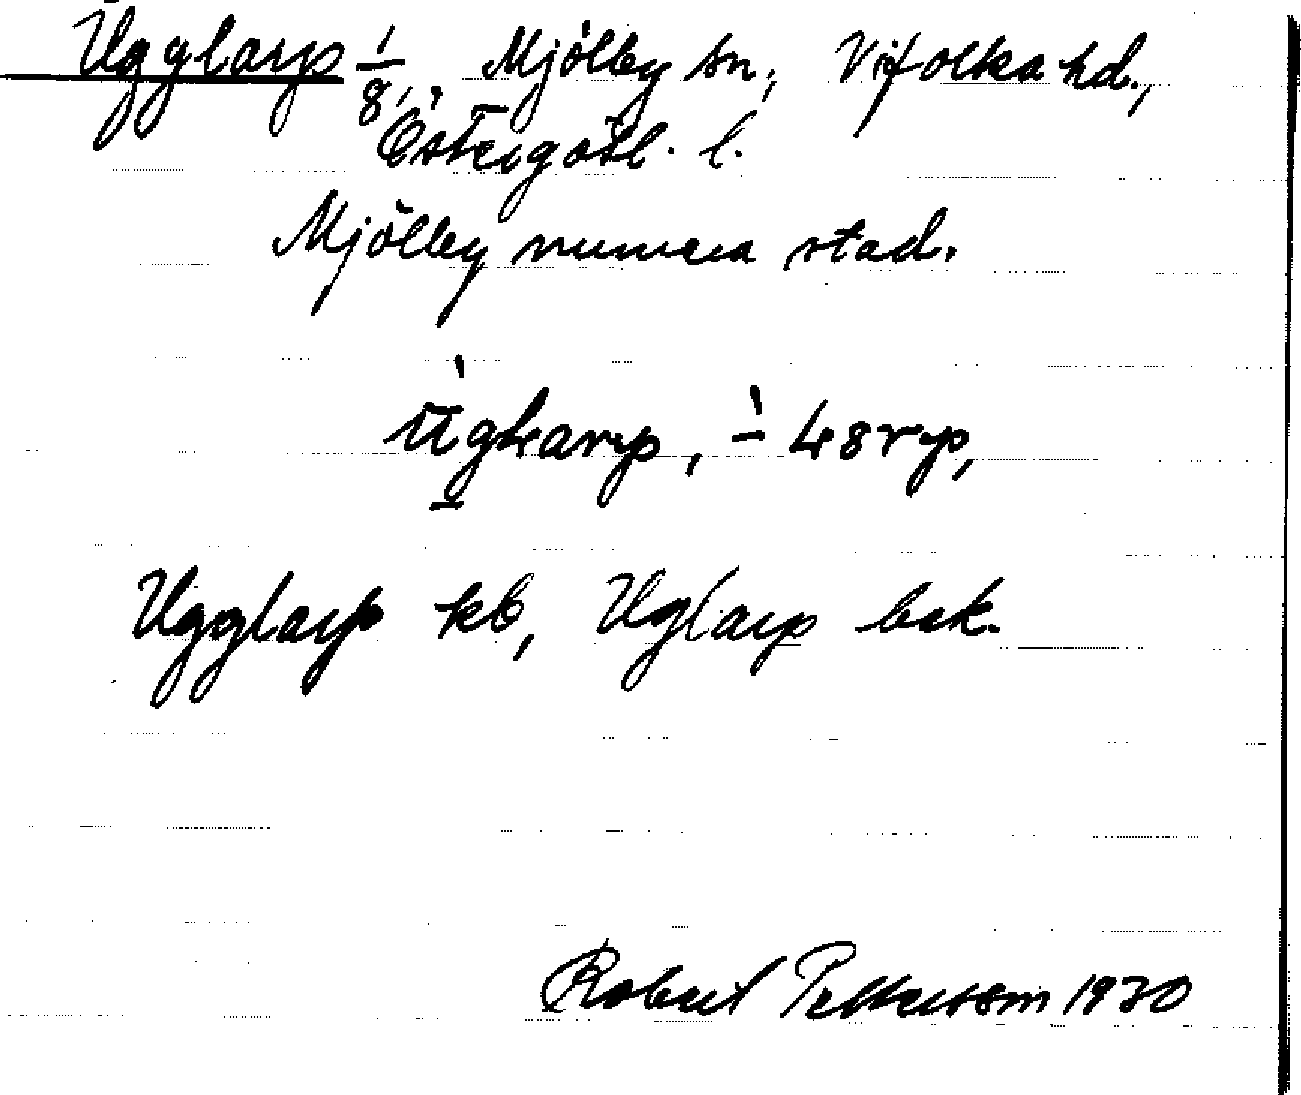 Ugglarp 1/8, Mjölby sn, Vifolka hd.,
Östergötl. l.
Mjölby numera stad.
Ugglarp kb, Uglarp bek.
Robert Pettersson 1930